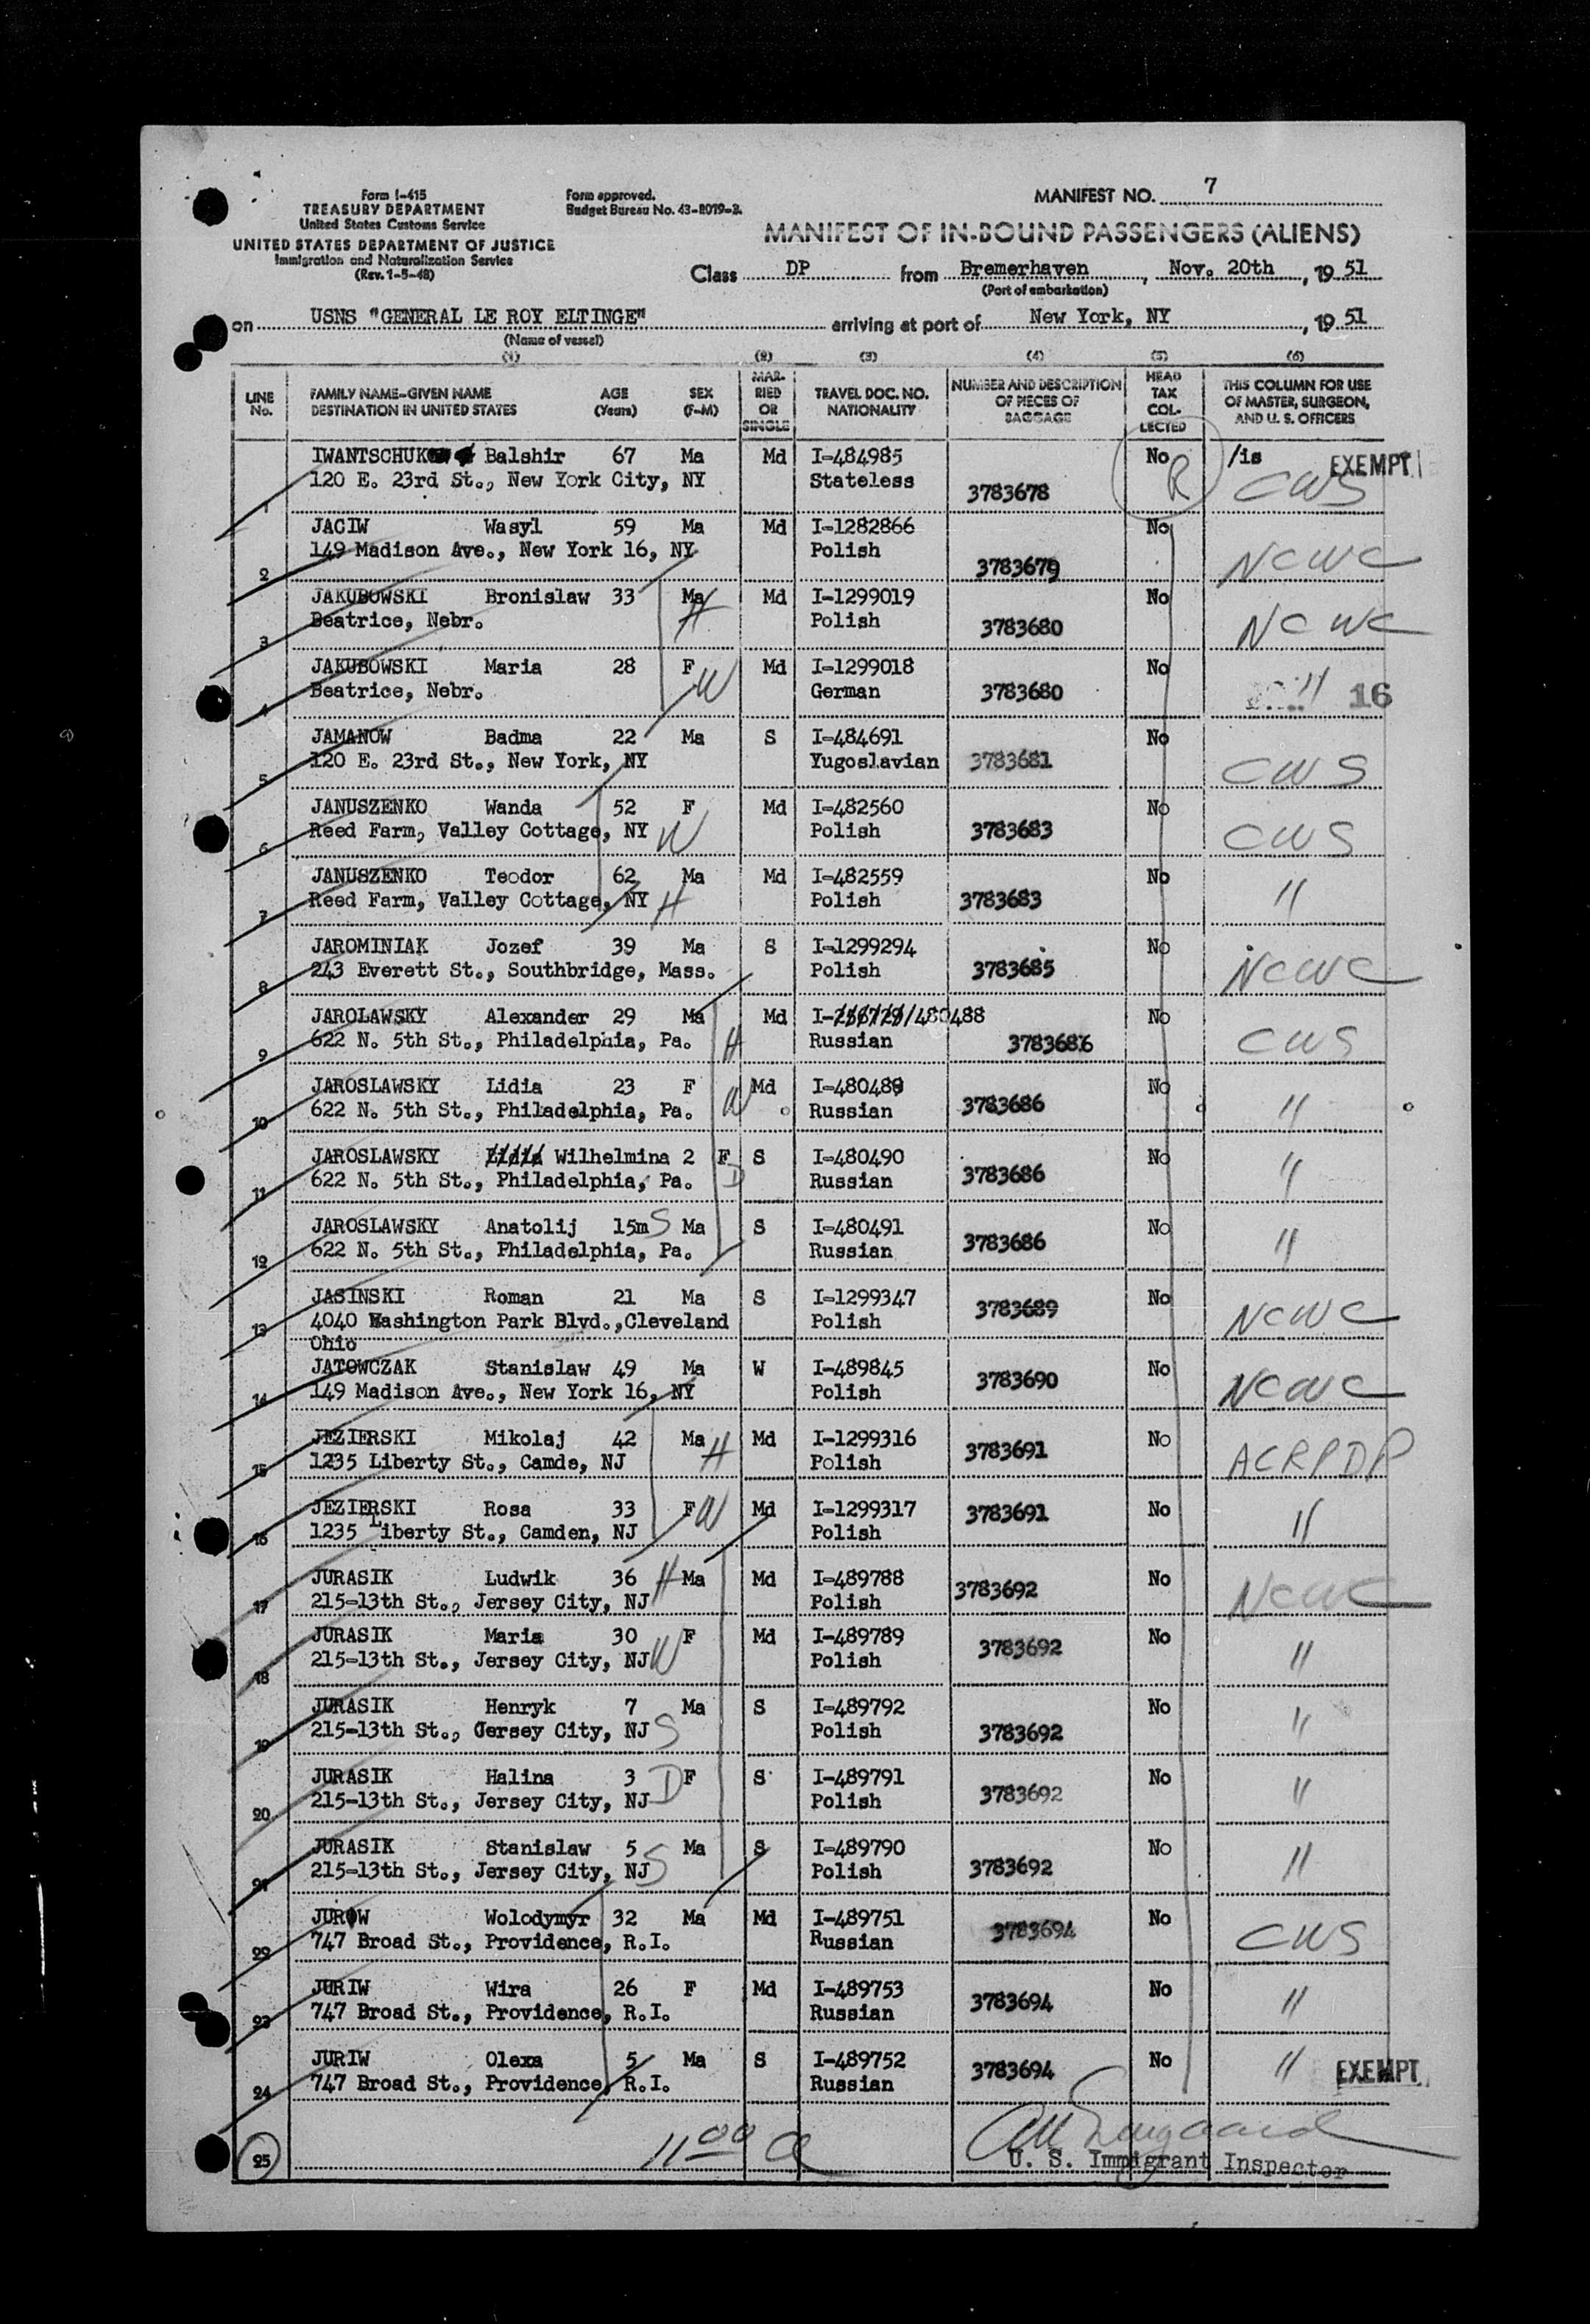 Form I-415
TREASURY DEPARTMENT
United States Customs Service
UNITED STATES DEPARTMENT OF JUSTICE
Immigration and Naturalization Service
(Rev. 1-5-48)
Form approved.
Budget Bureau No. 43-R079-2.
MANIFEST NO. 7
MANIFEST OF IN-BOUND PASSENGERS (ALIENS)
Class DP from Bremerhaven, Nov. 20th, 19 51
(Port of embarkation)
on USNS "GENERAL LE ROY ELTINGE" arriving at port of New York, NY, 19 51
(Name of vessel)
(1) (2) (3) (4) (5) (6)
LINE No. FAMILY NAME-GIVEN NAME DESTINATION IN UNITED STATES AGE (Years) SEX (F-M) MARRIED OR SINGLE TRAVEL DOC. NO. NATIONALITY NUMBER AND DESCRIPTION OF PIECES OF BAGGAGE HEAD TAX COLLECTED THIS COLUMN FOR USE OF MASTER, SURGEON, AND U. S. OFFICERS
IWANTSCHUK Balshir 67 Ma Md I-484985 No R /is EXEMPT
1 120 E. 23rd St., New York City, NY Stateless 3783678 CWS
JACIW Wasyl 59 Ma Md I-1282866 No
2 149 Madison Ave., New York 16, NY Polish 3783679 NCWC
JAKUBOWSKI Bronislaw 33 Ma H Md I-1299019 No
3 Beatrice, Nebr. Polish 3783680 NCWC
JAKUBOWSKI Maria 28 F W Md I-1299018 No
4 Beatrice, Nebr. German 3783680 " 16
JAMANOW Badma 22 Ma S I-484691 No
5 120 E. 23rd St., New York, NY Yugoslavian 3783681 CWS
JANUSZENKO Wanda 52 F Md I-482560 No
6 Reed Farm, Valley Cottage, NY W Polish 3783683 CWS
JANUSZENKO Teodor 62 Ma Md I-482559 No
7 Reed Farm, Valley Cottage, NY H Polish 3783683 "
JAROMINIAK Jozef 39 Ma S I-1299294 No
8 243 Everett St., Southbridge, Mass. Polish 3783685 NCWC
JAROLAWSKY Alexander 29 Ma Md I-480488 No
9 622 N. 5th St., Philadelphia, Pa. H Russian 3783686 CWS
JAROSLAWSKY Lidia 23 F Md I-480489 No
10 622 N. 5th St., Philadelphia, Pa. W Russian 3783686 "
JAROSLAWSKY Lidia Wilhelmina 2 F S I-480490 No
11 622 N. 5th St., Philadelphia, Pa. D Russian 3783686 "
JAROSLAWSKY Anatolij 15m S Ma S I-480491 No
12 622 N. 5th St., Philadelphia, Pa. Russian 3783686 "
JASINSKI Roman 21 Ma S I-1299347 No
13 4040 Washington Park Blvd.,Cleveland Polish 3783689 NCWC
Ohio
JATOWCZAK Stanislaw 49 Ma W I-489845 No
14 149 Madison Ave., New York 16, NY Polish 3783690 NCWC
JEZIERSKI Mikolaj 42 Ma H Md I-1299316 No
15 1235 Liberty St., Camde, NJ Polish 3783691 ACRPDP
JEZIERSKI Rosa 33 F W Md I-1299317 No
16 1235 Liberty St., Camden, NJ Polish 3783691 "
JURASIK Ludwik 36 H Ma Md I-489788 No
17 215-13th St., Jersey City, NJ Polish 3783692 NCWC
JURASIK Maria 30 F Md I-489789 No
18 215-13th St., Jersey City, NJ W Polish 3783692 "
JURASIK Henryk 7 Ma S I-489792 No
19 215-13th St., Gersey City, NJ S Polish 3783692 "
JURASIK Halina 3 D F S I-489791 No
20 215-13th St., Jersey City, NJ Polish 3783692 "
JURASIK Stanislaw 5 Ma S I-489790 No
21 215-13th St., Jersey City, NJ S Polish 3783692 "
JUROW Wolodymyr 32 Ma Md I-489751 No
22 747 Broad St., Providence, R.I. Russian 3783694 CWS
JURIW Wira 26 F Md I-489753 No
23 747 Broad St., Providence, R.I. Russian 3783694 "
JURIW Olexa 5 Ma S I-489752 No
24 747 Broad St., Providence, R.I. Russian 3783694 " EXEMPT
25 11 00
U. S. Immigrant Inspector